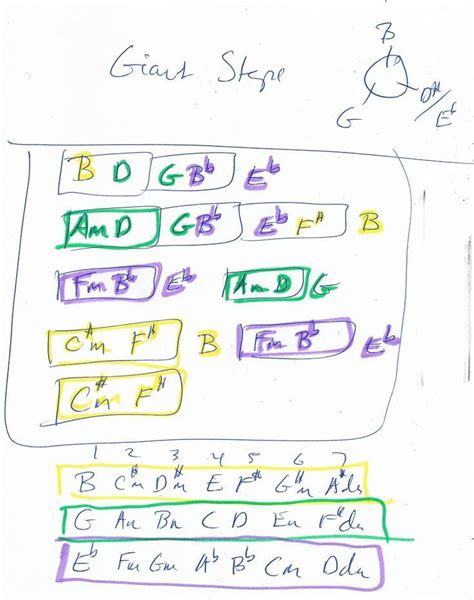 B
Giant Steps
G
D#/Eb
B D G Bb Eb
Am D G Bb Eb F# B
Fm Bb Eb Am D G
C#m F# B Fm Bb Eb
C#m F#
1 2 3 4 5 6 7
B C#m D#m E F# G#m A#dim
G Am Bm C D Em F#dim
Eb Fm Gm Ab Bb Cm Ddim